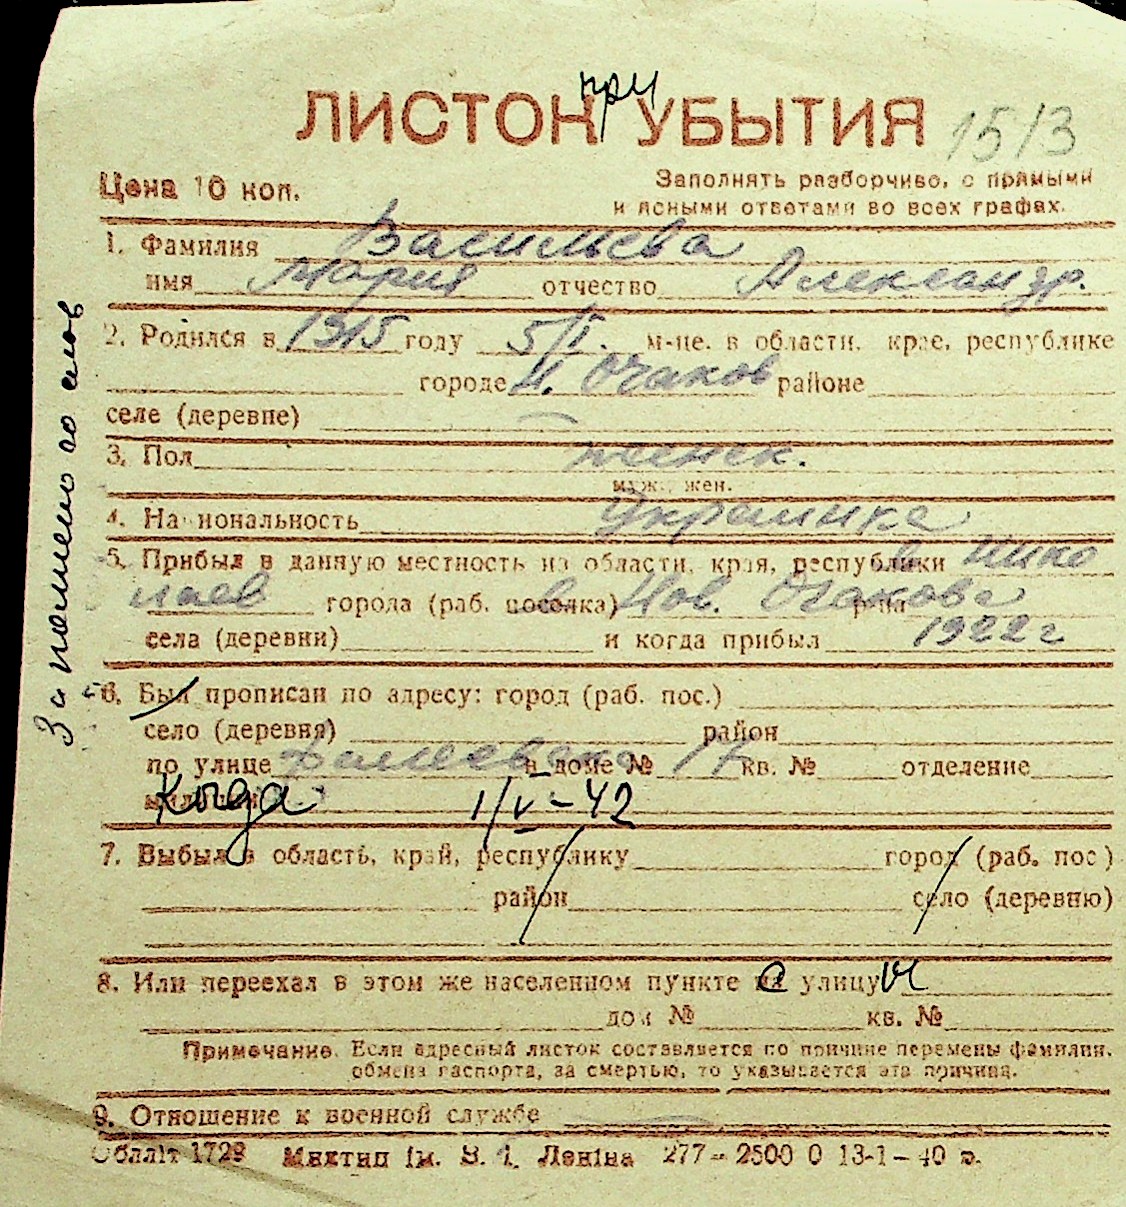 при
ЛИСТОК УБЫТИЯ 15/3
Цена 10 коп. Заполнять разборчиво, с прямыми
и ясными ответами во всех графах.
1. Фамилия Васильева
имя Мария отчество Александр.
2. Родился в 1915 году 5/I. м-це. в области, крае, республике
городе Н. Очаков районе
селе (деревне)
3. Пол женск.
муж., жен.
4. Национальность Украинка
5. Прибыл в данную местность из области, края, республики в Нико
лаев города (раб. поселка) Нов. Очакова р-на
села (деревни) и когда прибыл 1922 г
6. Был прописан по адресу: город (раб. пос.)
село (деревня) район
по улице в доме № 17 кв. № отделение
милиции Когда 1/V-42
7. Выбыл в область, край, республику город (раб. пос)
район село (деревню)
8. Или переехал в этом же населенном пункте с улицу
дом № кв. №
Примечание. Если адресный листок составляется по причине перемены фамилии,
обмена паспорта, за смертью, то указывается эта причина.
9. Отношение к военной службе
Обллiт 1729 Миктип iм. В. I. Ленiна 277-2500 0 13-1-40 р.
Заполнено со слов